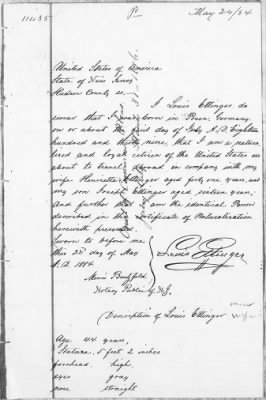 11435
May 24/84
United States of America
State of New Jersey
Hudson County ss.
I Louis Ettinger do
swear that I was born in Posen, Germany
on or about the first day of July A.D. Eighteen
hundred and thirty nine, that I am a natura-
lized and loyal citizen of the United States
about to travel abroad in company with my
wife Henrietta Ettinger aged forty one years, and
my son Joseph Ettinger aged sixteen years,
and further that I am the identical Person
described in the Certificate of Naturalization
herewith presented.
Sworn to before me
this 23d day of May
A.D. 1884.
Louis Ettinger
Notary Public of N.J.
Description of Louis Ettinger
Age 44 years
Stature, 5 feet 2 inches
forehead, high,
eyes gray
nose straight